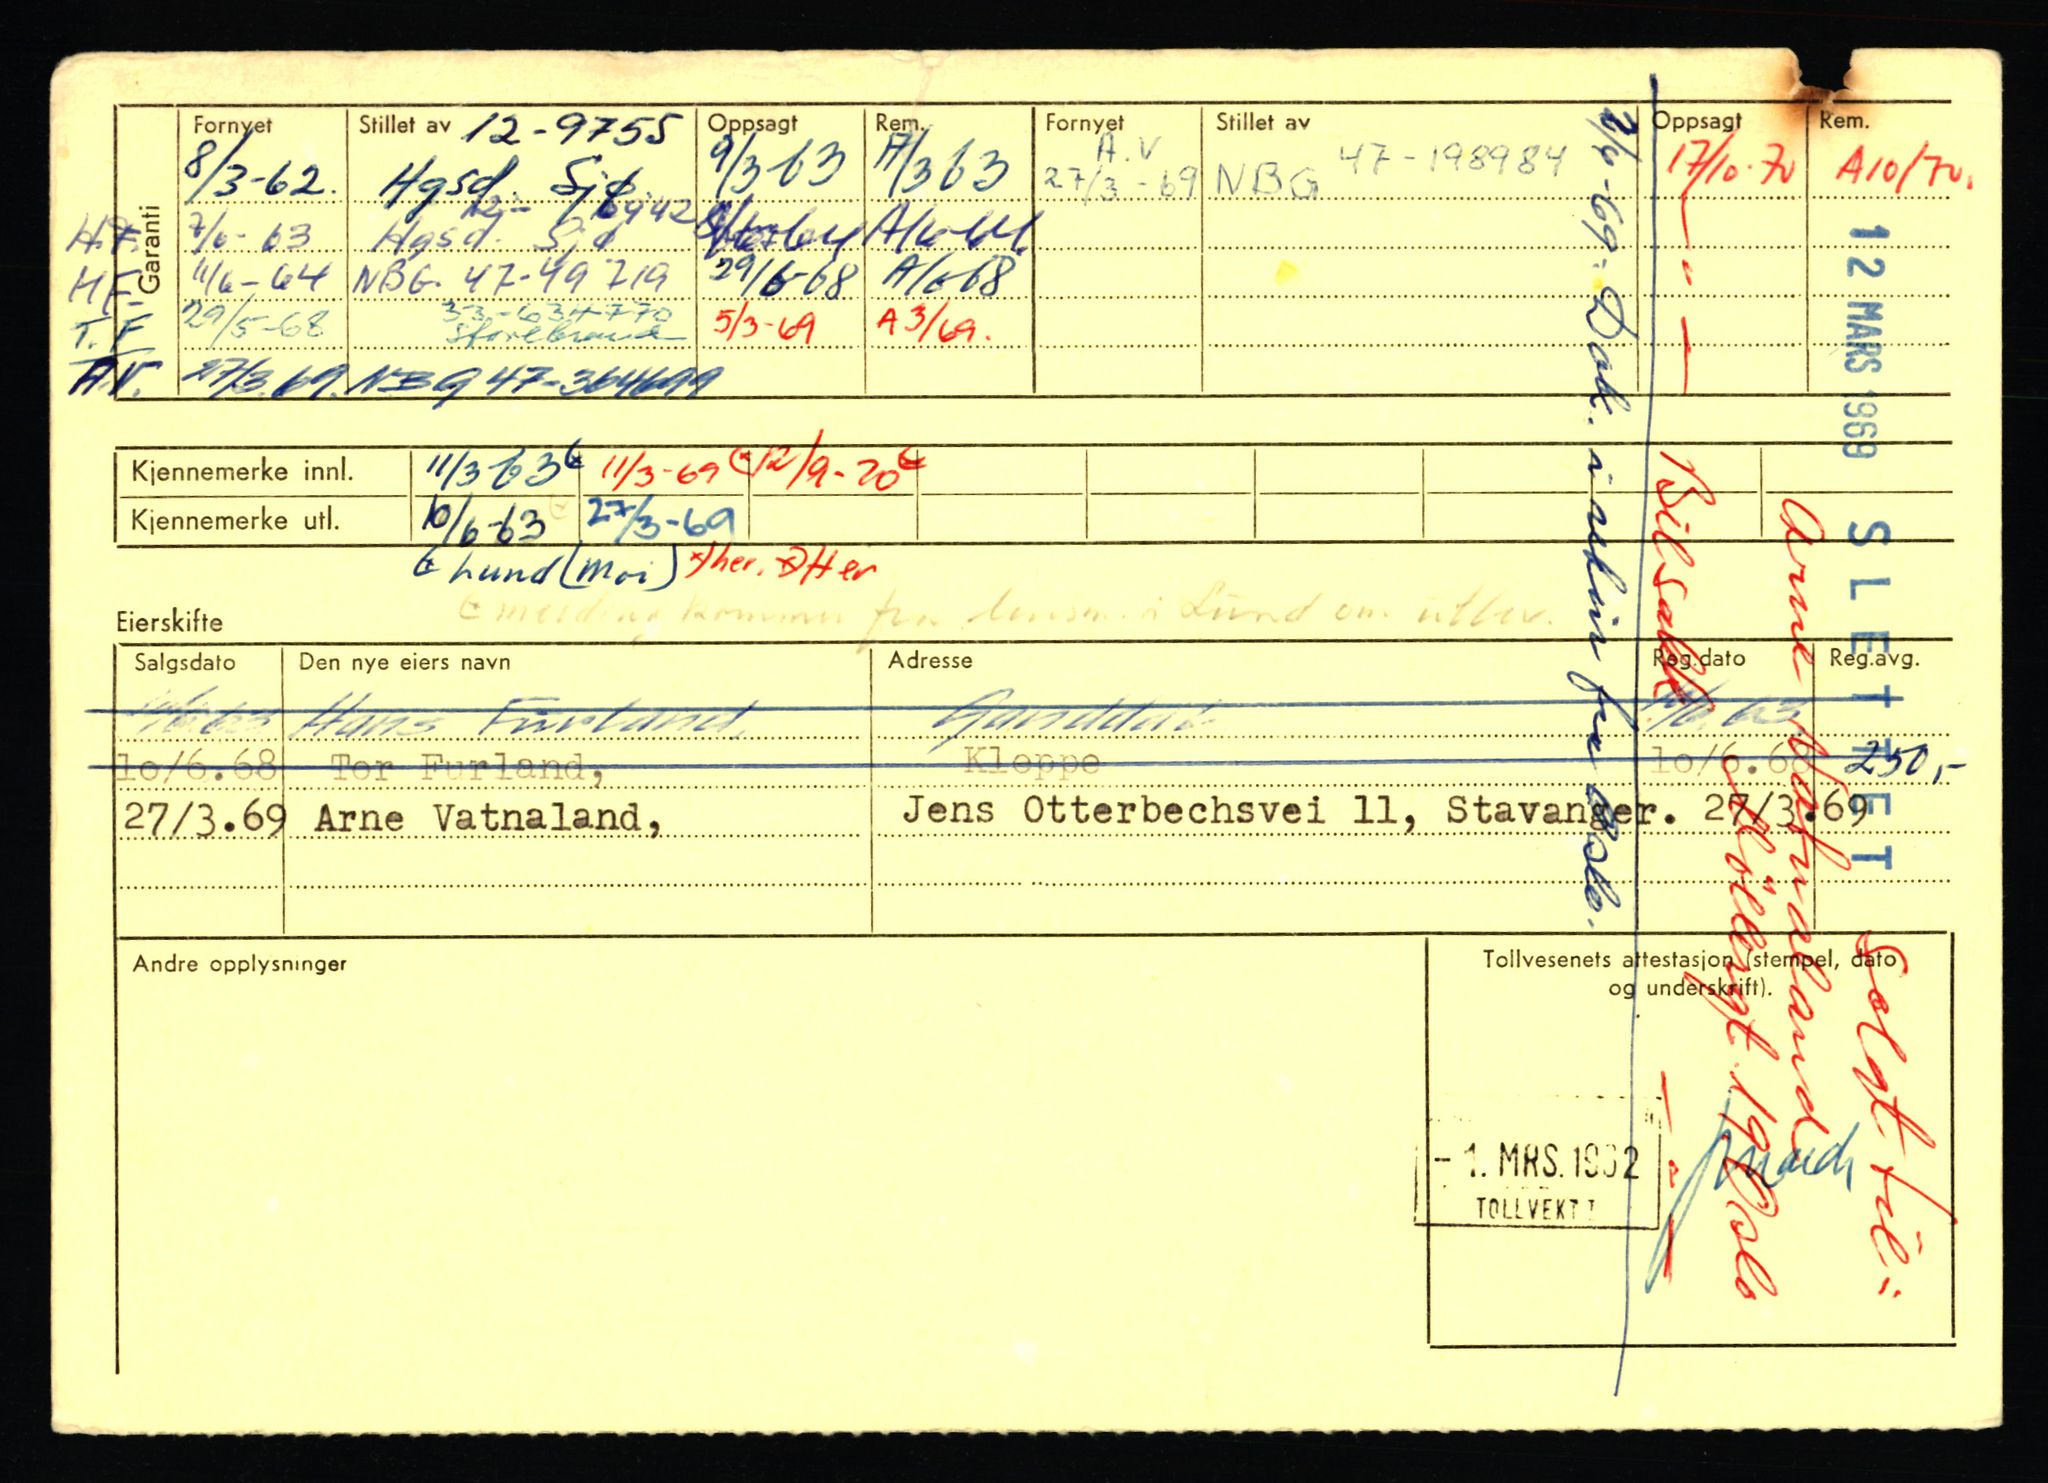 Garanti
Fornyet Stillet av 12-9755 Oppsagt Rem. Fornyet Stillet av Oppsagt Rem.
8/3-62. Hgsd. Sjø. 9/3 63 A/3 63 A.V 27/3-69 NBG 47-198984 17/10-70 A10/70.
H.F. 7/6-63 Hgsd. Sjø 12-6942 A/6-64
H F. 11/6-64 NBG. 47-49719 29/6-68 A/6-68
T.F 29/5-68 33-634770 Storebrand 5/3-69 A 3/69.
A.V. 27/3.69. NBG 47-364699
Kjennemerke innl. 11/3 63 11/3-69 12/9-70
Kjennemerke utl. 10/6-63 27/3-69
Lund (Moi) her. Her
melding kommer fra lensm. i Lund om utlev.
Eierskifte
Salgsdato Den nye eiers navn Adresse Reg.dato Reg.avg.
Hans Furland,
10/6.68 Tor Furland, Kleppe 10/6.68 250,-
27/3.69 Arne Vatnaland, Jens Otterbechsvei 11, Stavanger. 27/3.69
Andre opplysninger
Tollvesenets attestasjon (stempel, dato
og underskrift).
- 1. MRS. 1962
TOLLVEKT I
2/6-69. Dok. i arkiv fra Oslo.
12 MARS 1969 SLETTET
Solgt til:
Arne Vatnaland
Bilsalk Möllergt. 19 Oslo